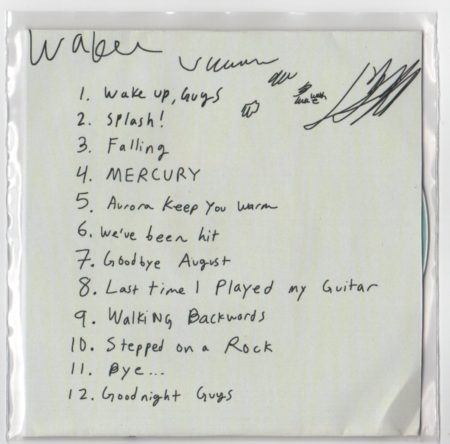 Waker
1. Wake up, Guys
2. Splash!
3. Falling
4. MERCURY
5. Aurora Keep You Warm
6. We've been hit
7. Goodbye August
8. Last time I Played my Guitar
9. Walking Backwords
10. Stepped on a Rock
11. Bye...
12. Goodnight Guys